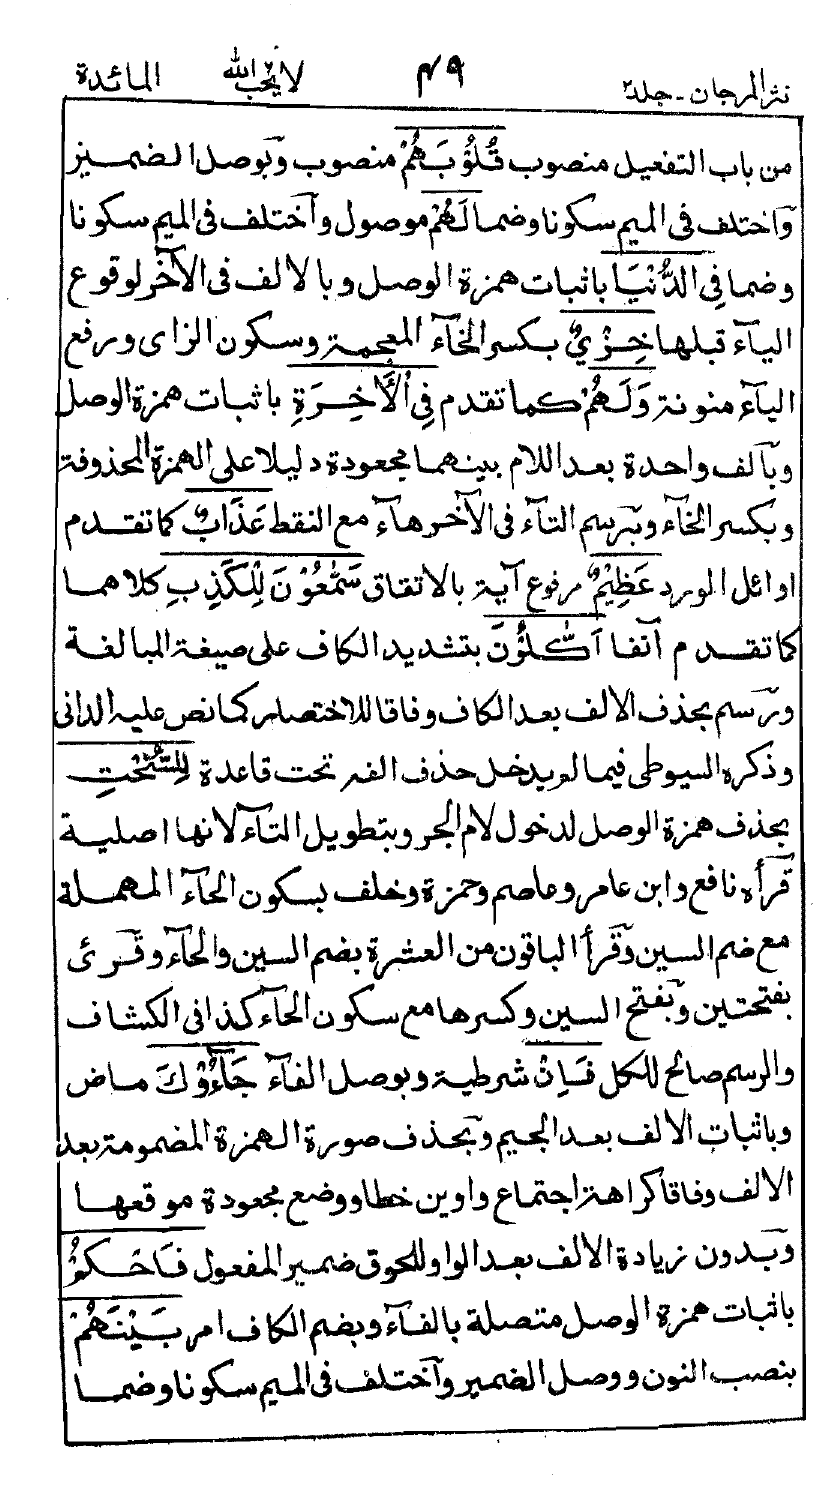 نثر المرجان - جلد٢ ٤٩ لا يحب الله المائدة
من باب التفعيل منصوب قُلُوْبَهُمْ منصوب وبوصل الضمير
واختلف فى الميم سكونا وضما لَهُمْ موصول وآختلف فى الميم سكونا
وضما فِي الدُّنْيَا باثبات همزة الوصل وبالالف فى الآخر لوقوع
اليآء قبلها خِزْيٌ بكسر الخآء المعجمة وسكون الزاى ورفع
اليآء منونة وَلَهُمْ كما تقدم فِي الْاٰخِرَةِ باثبات همزة الوصل
وبآلف واحدة بعد اللام بينهما مجعودة دليلا على الهمزة المحذوفة
وبكسر الخآء وبرسم التآء فى الآخر هآء مع النقط عَذَابٌ كما تقدم
اوائل الورد عَظِيْمٌ مرفوع آية بالاتفاق سَمّٰعُوْنَ لِلْكَذِبِ كلاهما
كما تقدم آنفا اَكّٰلُوْنَ بتشديد الكاف على صيغة المبالغة
ورسم بحذف الالف بعد الكاف وفاقا للاختصار كما نص عليه الدانى
وذكره السيوطى فيما لم يدخل حذف الفه تحت قاعدة لِلسُّحْتِ
بحذف همزة الوصل لدخول لام الجر وبتطويل التآء لانها اصلية
قرأه نافع وابن عامر وعاصم وحمزة وخلف بسكون الحآء المهملة
مع ضم السين وقرأ الباقون من العشرة بضم السين والحآء وقرئ
بفتحتين وبفتح السين وكسرها مع سكون الحآء كذا فى الكشاف
والرسم صالح للكل فَاِنْ شرطية وبوصل الفآء جَآءُوْكَ ماض
وباثبات الالف بعد الجيم وبحذف صورة الهمزة المضمومة بعد
الالف وفاقا كراهة اجتماع واوين خطا ووضع مجعودة موقعها
وبدون زيادة الالف بعد الواو للحوق ضمير المفعول فَاحْكُمْ
باثبات همزة الوصل متصلة بالفآء وبضم الكاف امر بَيْنَهُمْ
بنصب النون ووصل الضمير وآختلف فى الميم سكونا وضما